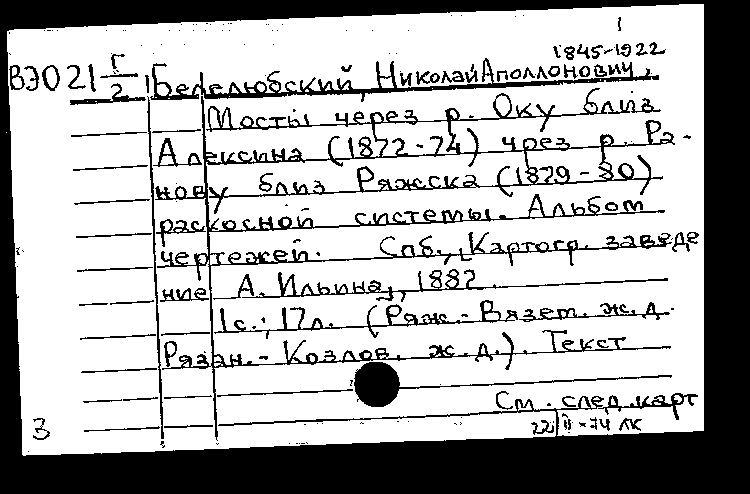 1
1845-1922
ВЭО 21 Г/2 Белелюбский, Николай Аполлонович.
Мосты через р. Оку близ
Алексина (1872-74) чрез р. Ра-
нову близ Ряжска (1879-80)
раскосной системы. Альбом
чертежей. Спб., [Картогр. заведе
ние А. Ильина], 1882.
1с.; 17л. (Ряж.-Вязем. ж.д.
Рязан.-Козлов. ж.д.). Текст
См. след. карт
3
22/II-74 ЛК